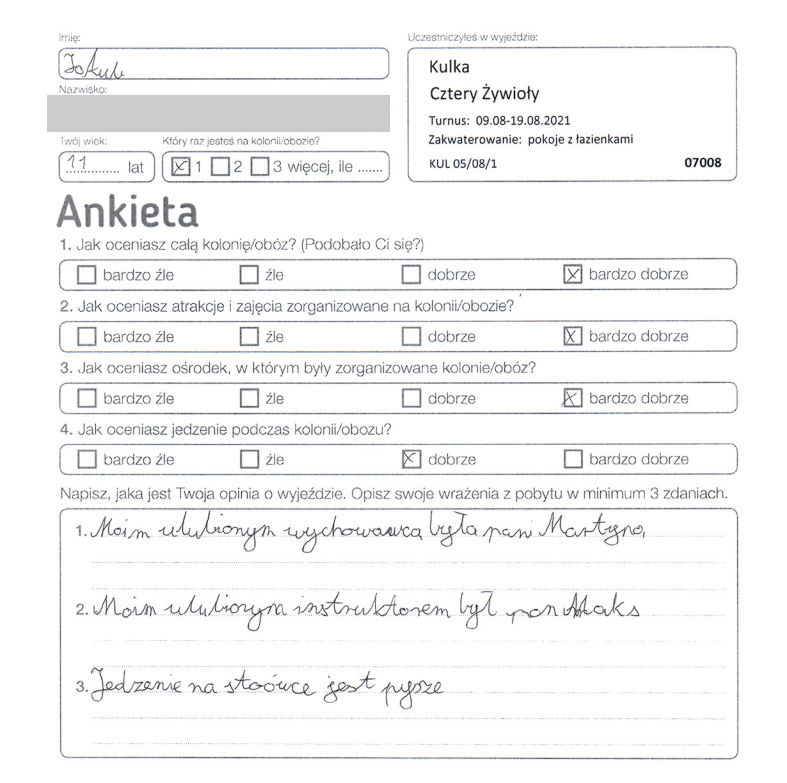 Imię:
Jakub
Nazwisko:
Twój wiek:
11 lat
Który raz jesteś na kolonii/obozie?
1 2 3 więcej, ile .......
Uczestniczyłeś w wyjeździe:
Kulka
Cztery Żywioły
Turnus: 09.08-19.08.2021
Zakwaterowanie: pokoje z łazienkami
KUL 05/08/1 07008
Ankieta
1. Jak oceniasz całą kolonię/obóz? (Podobało Ci się?)
bardzo źle źle dobrze bardzo dobrze
2. Jak oceniasz atrakcje i zajęcia zorganizowane na kolonii/obozie?
bardzo źle źle dobrze bardzo dobrze
3. Jak oceniasz ośrodek, w którym były zorganizowane kolonie/obóz?
bardzo źle źle dobrze bardzo dobrze
4. Jak oceniasz jedzenie podczas kolonii/obozu?
bardzo źle źle dobrze bardzo dobrze
Napisz, jaka jest Twoja opinia o wyjeździe. Opisz swoje wrażenia z pobytu w minimum 3 zdaniach.
1. Moim ulubionym wychowawcą była pani Martyna,
2. Moim ulubionym instruktorem był pan Maks
3. Jedzenie na stoówce jest pysze